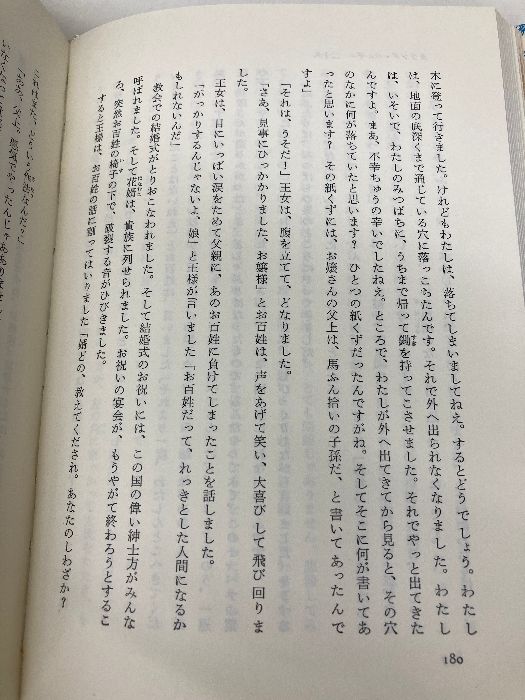 木に登って行きました。けれどもわたしは、落ちてしまいましてねえ。するとどうでしょう。わたし
は、地面の底深くまで通じている穴に落っこちたんです。それで外へ出られなくなりました。わたし
は、いそいで、わたしのみつばちに、うちまで帰って鋤を持ってこさせました。それでやっと出てきた
んですよ。まあ、不幸ちゅうの幸いでしたねえ。ところで、わたしが外へ出てきてから見ると、その穴
のなかに何が落ちていたと思います? ひとつの紙くずだったんですがね。そしてそこに何が書いてあ
ったと思います? その紙くずには、お嬢さんの父上は、馬ふん拾いの子孫だ、と書いてあったんで
すよ」
「それは、うそだ!」王女は、腹を立てて、どなりました。
「さあ、見事にひっかかりました、お嬢様」とお百姓は、声をあげて笑い、大喜びして飛び回りま
す。
王女は、目にいっぱい涙をためて父親に、あのお百姓に負けてしまったことを話しました。
「がっかりするんじゃないよ、娘」と王様が言いました「お百姓だって、れっきとした人間になるか
もしれないんだ」
教会での結婚式がとりおこなわれました。そして結婚式のお祝いには、この国の偉い紳士方がみんな
呼ばれました。そして花婿は、貴族に列せられました。お祝いの宴会が、もうやがて終わろうとするこ
ろ、突然お百姓の椅子の下で、破裂する音がひびきました。
すると王様は、お百姓の話に割ってはいりました「婿どの、教えてくだされ。あなたのしわざか?
180